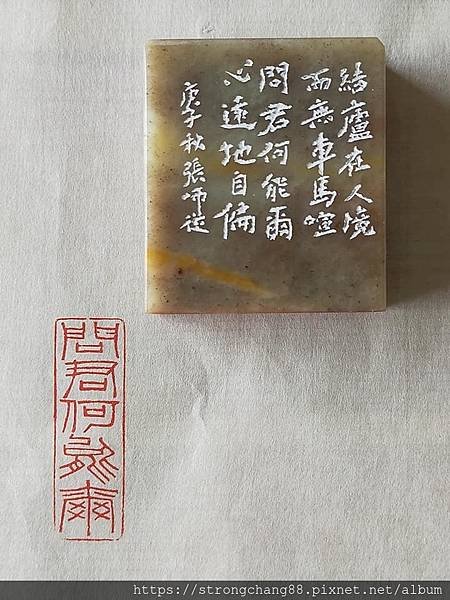 結廬在人境
而無車馬喧
問君何能爾
心遠地自偏
庚子秋張師從
問君何能爾
https://strongchang88.pixnet.net/album